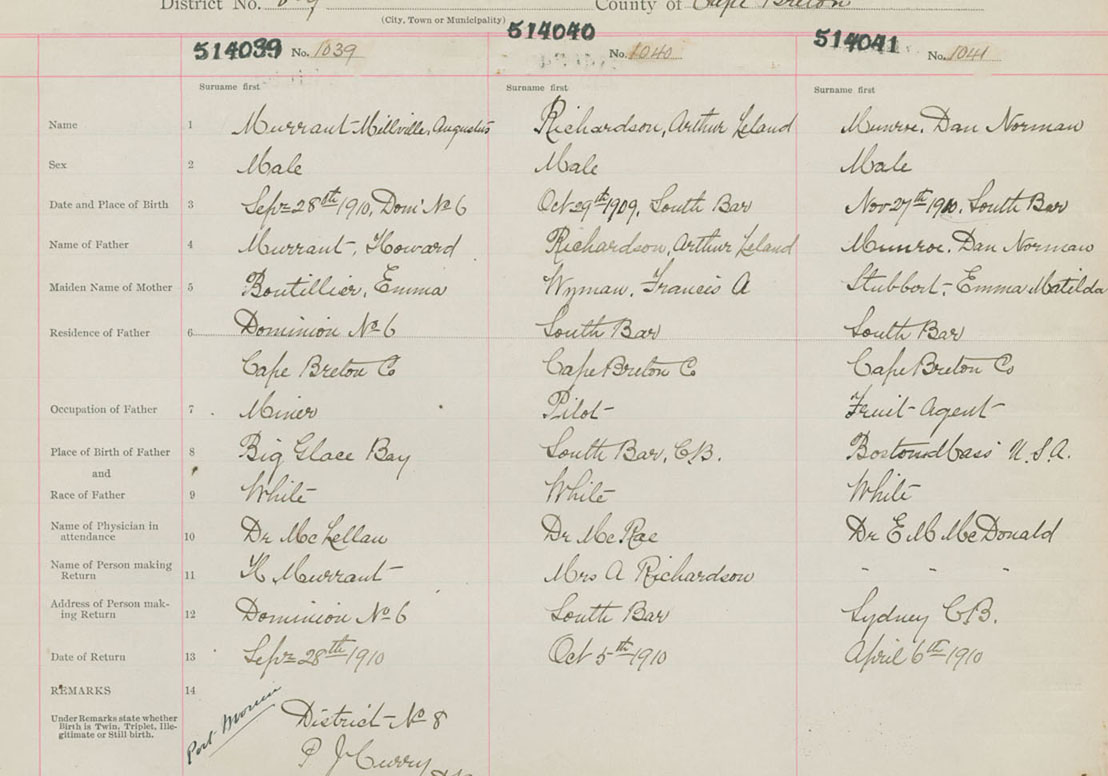 District No. County of Cape Breton
(City, Town or Municipality)
514039 No. 1039 514040 No. 1040 514041 No. 1041
Surname first Surname first Surname first
Name 1 Murrant Millville, Augustus Richardson, Arthur Leland Munroe, Dan Norman
Sex 2 Male Male Male
Date and Place of Birth 3 Sept 28th 1910, Dom: No 6 Oct 29th 1909, South Bar Nov 27th 1910, South Bar
Name of Father 4 Murrant, Howard Richardson, Arthur Leland Munroe, Dan Norman
Maiden Name of Mother 5 Boutillier, Emma Wyman, Francis A Stubbort, Emma Matilda
Residence of Father 6 Dominion No 6 South Bar South Bar
Cape Breton Co Cape Breton Co Cape Breton Co
Occupation of Father 7 Miner Pilot Fruit Agent
Place of Birth of Father 8 Big Glace Bay South Bar, C.B. Boston Mass U.S.A.
and
Race of Father 9 White White White
Name of Physician in
attendance 10 Dr McLellan Dr McRae Dr E M McDonald
Name of Person making
Return 11 H Murrant Mrs A Richardson " " "
Address of Person mak-
ing Return 12 Dominion No 6 South Bar Sydney C.B.
Date of Return 13 Sept 28th 1910 Oct 5th 1910 April 6th 1910
REMARKS 14
Under Remarks state whether
Birth is Twin, Triplet, Ille-
gitimate or Still birth.
Port Morien
District No 8
P J Curry